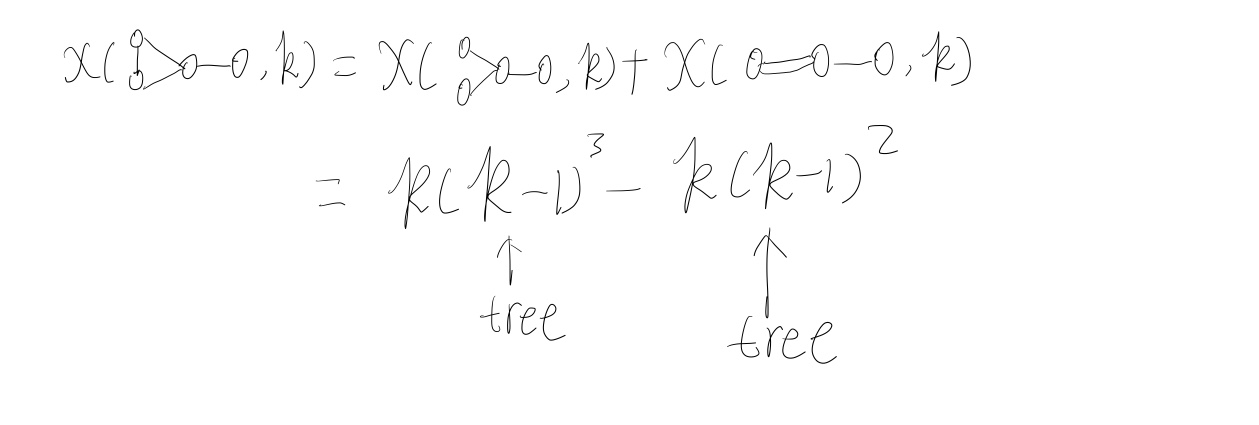 χ( , k) = χ( , k) + χ( , k)
= k(k-1)³ - k(k-1)²
↑ ↑
tree tree